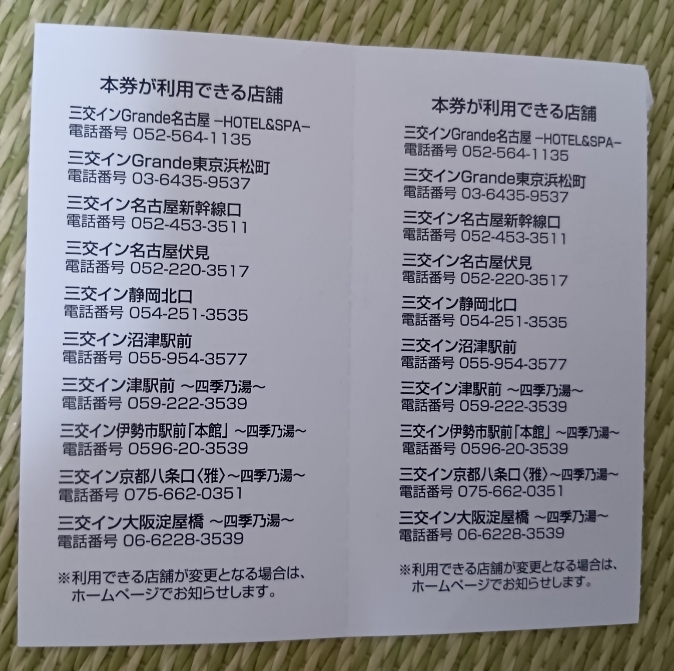 本券が利用できる店舗
三交インGrande名古屋 −HOTEL&SPA−
電話番号 052-564-1135
三交インGrande東京浜松町
電話番号 03-6435-9537
三交イン名古屋新幹線口
電話番号 052-453-3511
三交イン名古屋伏見
電話番号 052-220-3517
三交イン静岡北口
電話番号 054-251-3535
三交イン沼津駅前
電話番号 055-954-3577
三交イン津駅前 〜四季乃湯〜
電話番号 059-222-3539
三交イン伊勢市駅前「本館」〜四季乃湯〜
電話番号 0596-20-3539
三交イン京都八条口〈雅〉〜四季乃湯〜
電話番号 075-662-0351
三交イン大阪淀屋橋 〜四季乃湯〜
電話番号 06-6228-3539
※利用できる店舗が変更となる場合は、
ホームページでお知らせします。
本券が利用できる店舗
三交インGrande名古屋 −HOTEL&SPA−
電話番号 052-564-1135
三交インGrande東京浜松町
電話番号 03-6435-9537
三交イン名古屋新幹線口
電話番号 052-453-3511
三交イン名古屋伏見
電話番号 052-220-3517
三交イン静岡北口
電話番号 054-251-3535
三交イン沼津駅前
電話番号 055-954-3577
三交イン津駅前 〜四季乃湯〜
電話番号 059-222-3539
三交イン伊勢市駅前「本館」〜四季乃湯〜
電話番号 0596-20-3539
三交イン京都八条口〈雅〉〜四季乃湯〜
電話番号 075-662-0351
三交イン大阪淀屋橋 〜四季乃湯〜
電話番号 06-6228-3539
※利用できる店舗が変更となる場合は、
ホームページでお知らせします。